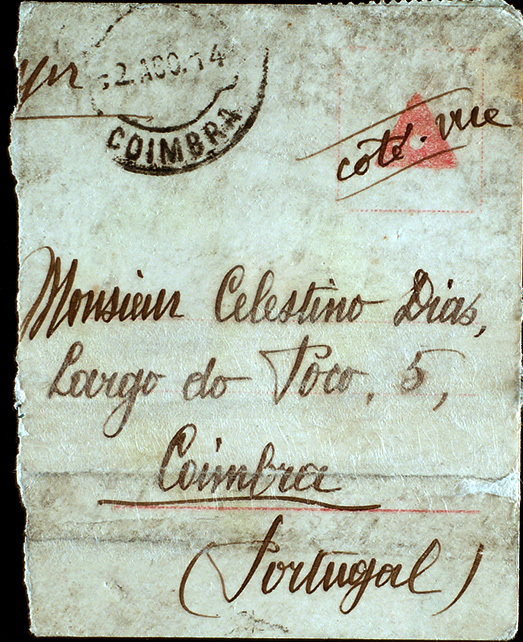 12.AGO.14
COIMBRA
côté. vue
Monsieur Celestino Dias,
Largo do Poco, 5,
Coimbra
(Portugal)